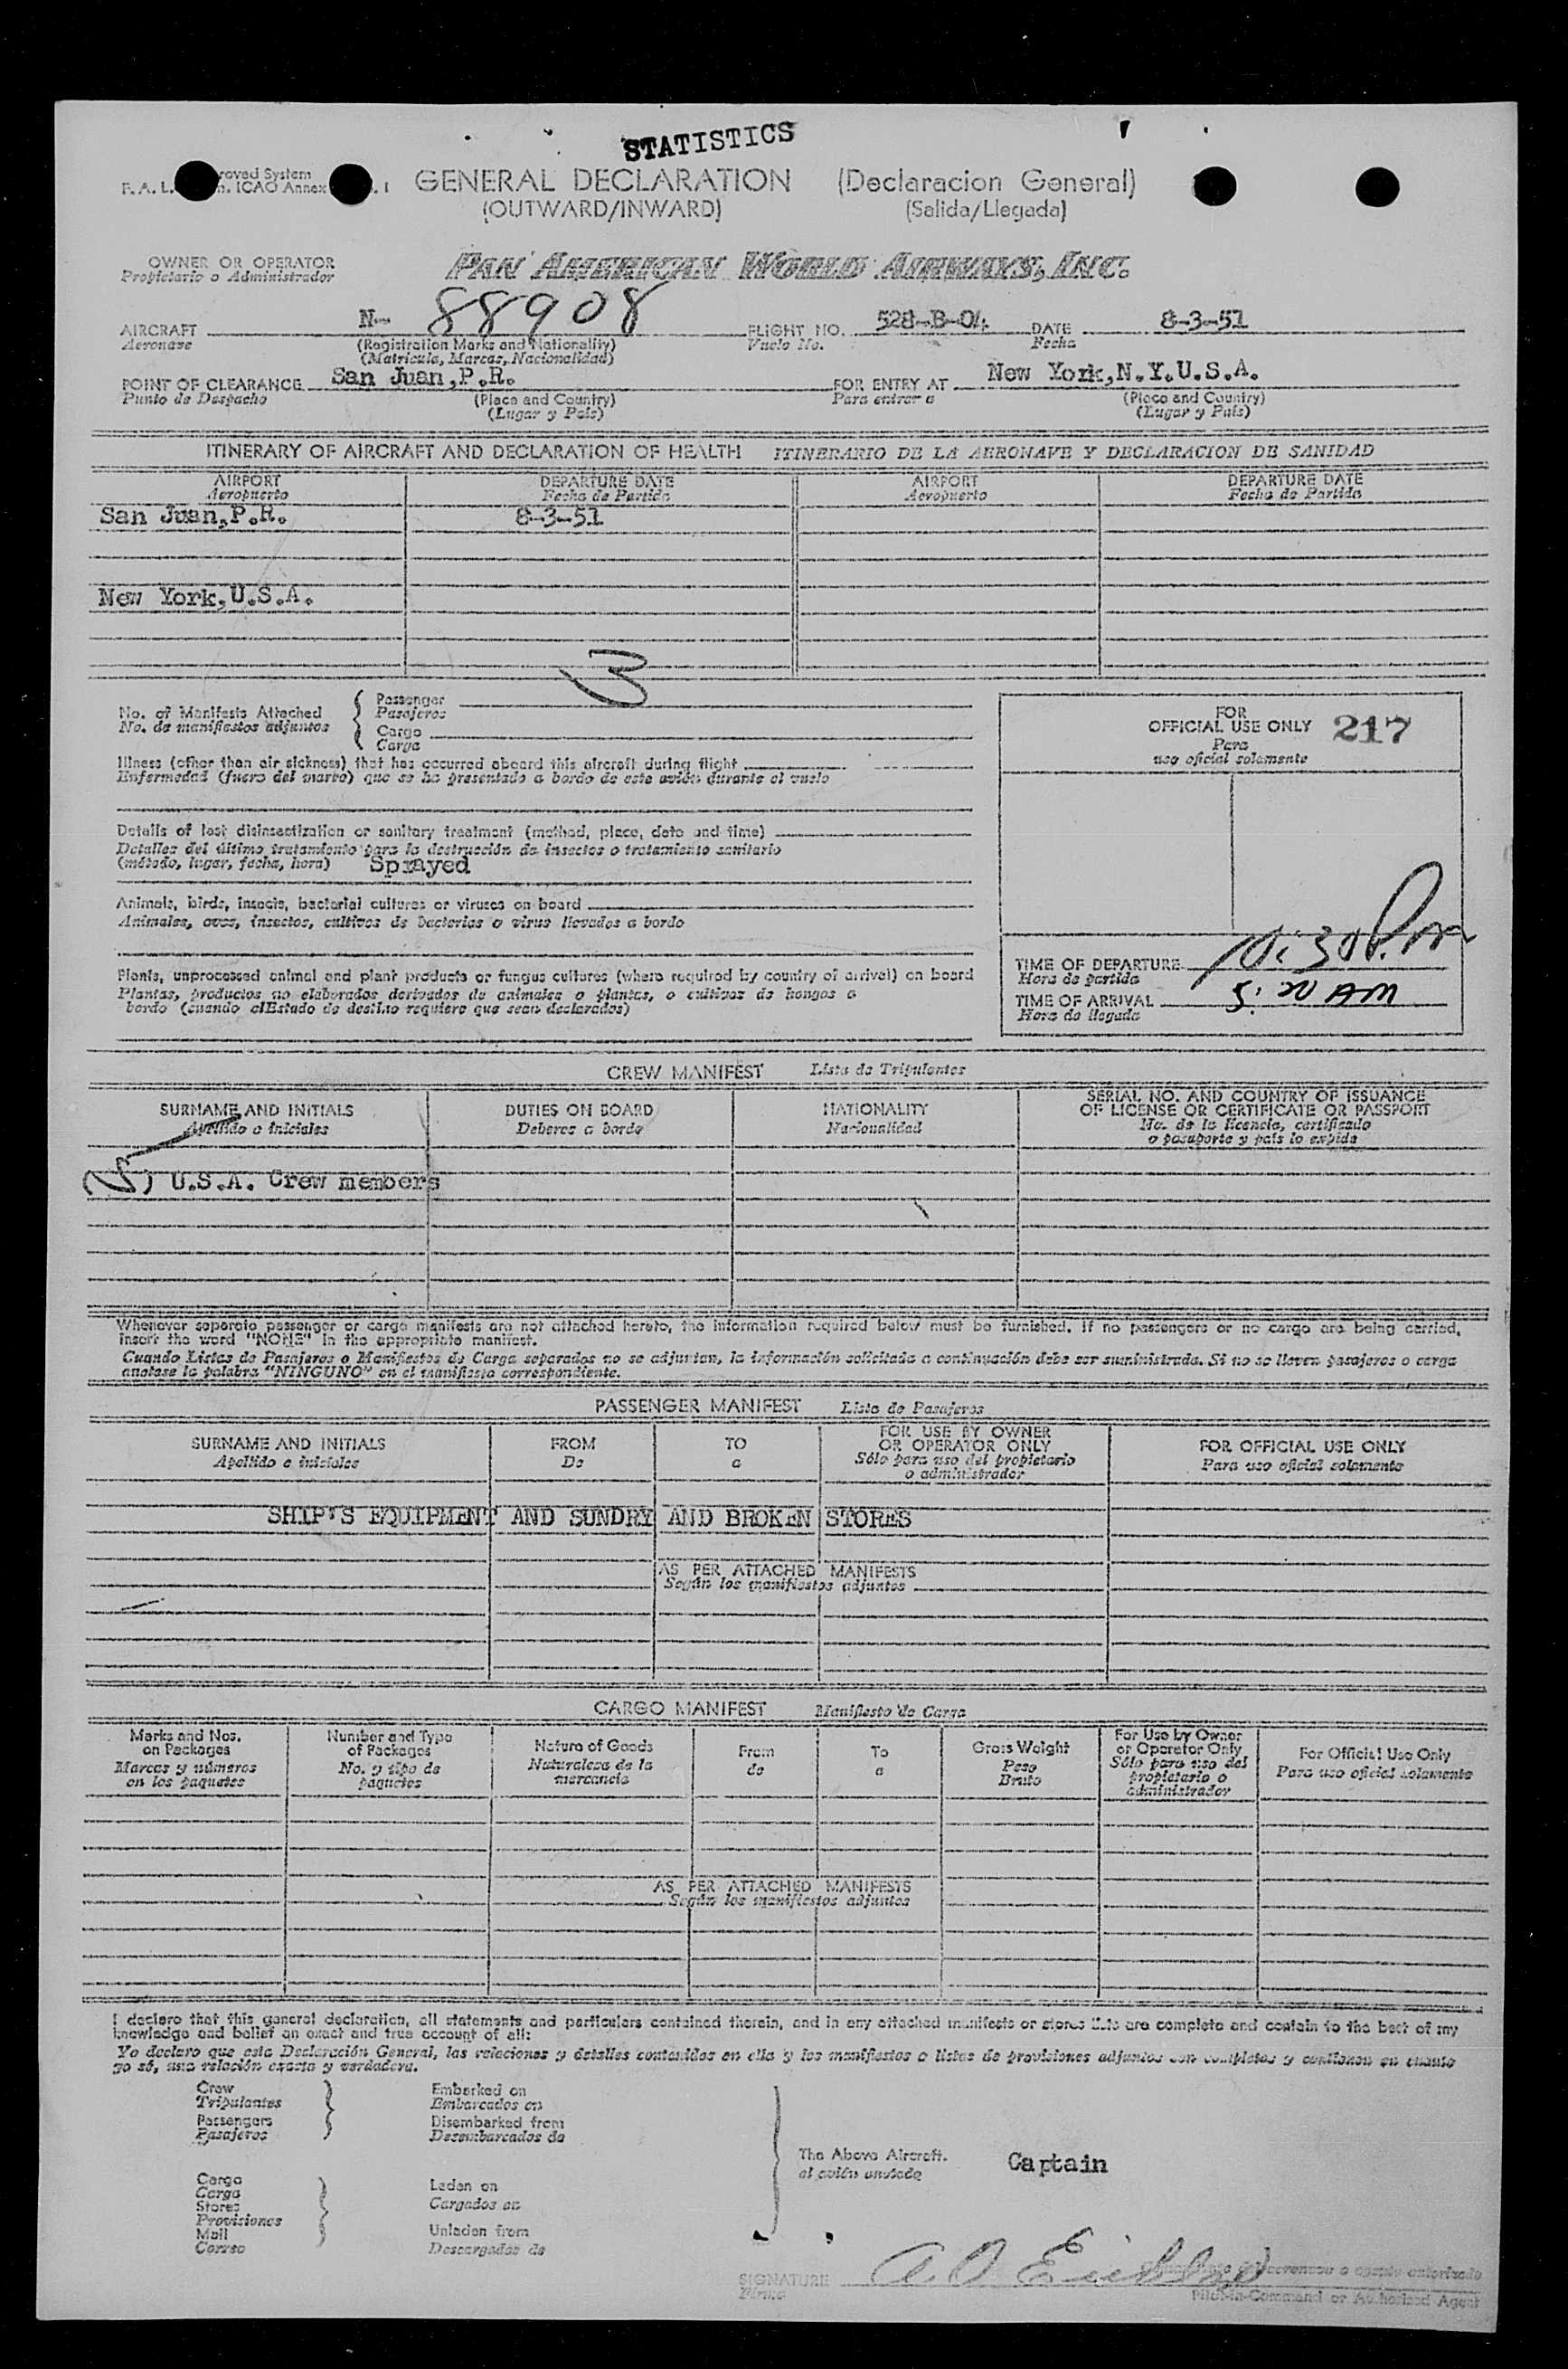 STATISTICS
F. A. L. roved System
n. ICAO Annex
GENERAL DECLARATION (Declaracion General)
(OUTWARD/INWARD) (Salida/Llegada)
OWNER OR OPERATOR PAN AMERICAN WORLD AIRWAYS, INC.
Propietario o Administrador
AIRCRAFT N- 88908 FLIGHT NO. 528-B-04 DATE 8-3-51
Aeronave (Registration Marks and Nationality) Vuelo No. Fecha
(Matricula, Marcas, Nacionalidad)
POINT OF CLEARANCE San Juan,P.R. FOR ENTRY AT New York,N.Y.U.S.A.
Punto de Despacho (Place and Country) Para entrar a (Place and Country)
(Lugar y País) (Lugar y País)
ITINERARY OF AIRCRAFT AND DECLARATION OF HEALTH ITINERARIO DE LA AERONAVE Y DECLARACION DE SANIDAD
AIRPORT DEPARTURE DATE AIRPORT DEPARTURE DATE
Aeropuerto Fecha de Partida Aeropuerto Fecha de Partida
San Juan,P.R. 8-3-51
New York,U.S.A.
3
No. of Manifests Attached Passenger
No. de manifiestos adjuntos Pasajeros
Cargo
Carga
Illness (other than air sickness) that has occurred aboard this aircraft during flight
Enfermedad (fuera del mareo) que se ha presentado a bordo de este avión durante el vuelo
Details of last disinsectization or sanitary treatment (method, place, date and time)
Detalles del último tratamiento para la destrucción de insectos o tratamiento sanitario
(método, lugar, fecha, hora) Sprayed
Animals, birds, insects, bacterial cultures or viruses on board
Animales, aves, insectos, cultivos de bacterias o virus llevados a bordo
Plants, unprocessed animal and plant products or fungus cultures (where required by country of arrival) on board
Plantas, productos no elaborados derivados de animales o plantas, o cultivos de hongos a
bordo (cuando elEstado de destino requiere que sean declarados)
FOR
OFFICIAL USE ONLY 217
Para
uso oficial solamente
TIME OF DEPARTURE 10:30 P.m
Hora de partida
TIME OF ARRIVAL 5:20 AM
Hora de llegada
CREW MANIFEST Lista de Tripulantes
SURNAME AND INITIALS DUTIES ON BOARD NATIONALITY SERIAL NO. AND COUNTRY OF ISSUANCE
OF LICENSE OR CERTIFICATE OR PASSPORT
Apellido e iniciales Deberes a bordo Nacionalidad No. de la licencia, certificado
o pasaporte y país lo expide
(5) U.S.A. Crew members
Whenever separate passenger or cargo manifests are not attached hereto, the information required below must be furnished. If no passengers or no cargo are being carried,
insert the word "NONE" in the appropriate manifest.
Cuando Listas de Pasajeros o Manifiestos de Carga separados no se adjuntan, la información solicitada a continuación debe ser suministrada. Si no se llevan pasajeros o carga
anotase la palabra "NINGUNO" en el manifiesto correspondiente.
PASSENGER MANIFEST Lista de Pasajeros
SURNAME AND INITIALS FROM TO FOR USE BY OWNER
OR OPERATOR ONLY FOR OFFICIAL USE ONLY
Apellido e iniciales De a Sólo para uso del propietario
o administrador Para uso oficial solamente
SHIP'S EQUIPMENT AND SUNDRY AND BROKEN STORES
AS PER ATTACHED MANIFESTS
Según los manifiestos adjuntos
CARGO MANIFEST Manifiesto de Carga
Marks and Nos.
on Packages
Marcas y números
en los paquetes
Number and Type
of Packages
No. y tipo de
paquetes
Nature of Goods
Naturaleza de la
mercancía
From
de
To
a
Gross Weight
Peso
Bruto
For Use by Owner
or Operator Only
Sólo para uso del
propietario o
administrador
For Official Use Only
Para uso oficial solamente
AS PER ATTACHED MANIFESTS
Según los manifiestos adjuntos
I declare that this general declaration, all statements and particulars contained therein, and in any attached manifests or stores lists are complete and contain to the best of my
knowledge and belief an exact and true account of all:
Yo declaro que esta Declaración General, las relaciones y detalles contenidos en ella y los manifiestos o listas de provisiones adjuntos son completos y contienen en cuanto
yo sé, una relación exacta y verdadera.
Crew Embarked on
Tripulantes Embarcados en
Passengers Disembarked from
Pasajeros Desembarcados de
The Above Aircraft. Captain
el avión anotado
Cargo Laden on
Carga Cargados en
Stores
Provisiones
Mail Unladen from
Correo Descargados de
SIGNATURE
Firma
Pilot-in-Command or Authorized Agent